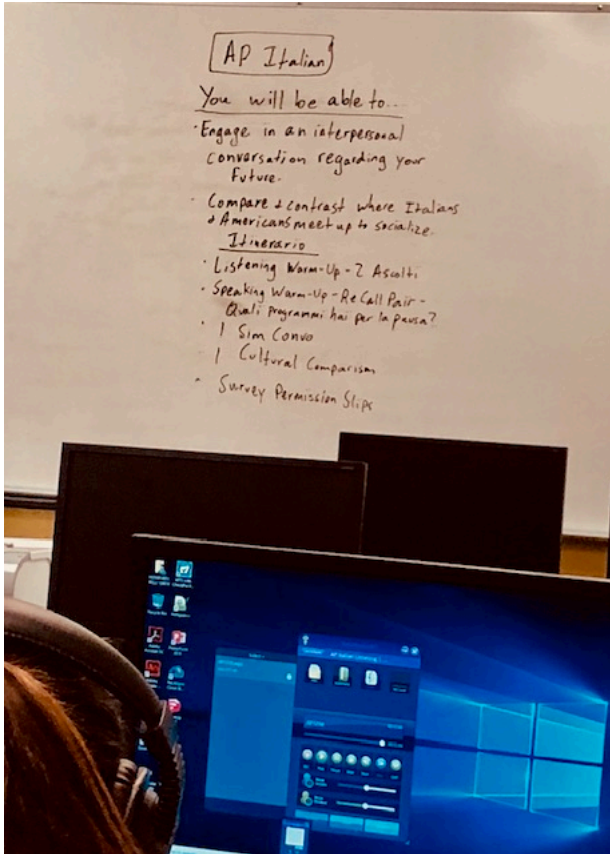 AP Italian
You will be able to...
· Engage in an interpersonal
conversation regarding your
Future.
· Compare & contrast where Italians
& Americans meet up to socialize.
Itinerario
· Listening Warm-Up - 2 Ascolti
· Speaking Warm-Up - ReCall Pair -
Quali programmi hai per la pausa?
· 1 Sim Convo
1 Cultural Comparism
· Survey Permission Slips